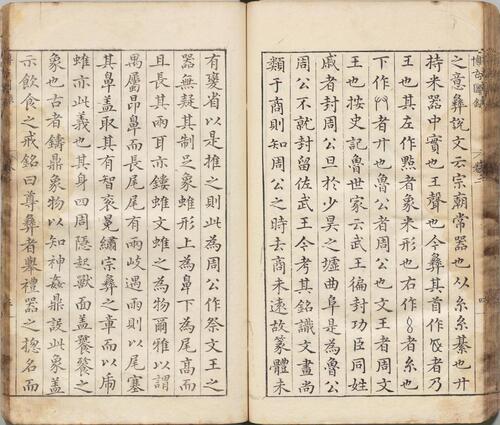 博古圖錄
卷二
之意彝說文云宗廟常器也从糸糸綦也廾
持米器中實也王聲也今彝其首作者乃
王也其左作點者象米形也右作者糸也
下作者廾也魯公者周公也文王者周文
王也按史記魯世家云武王徧封功臣同姓
戚者封周公旦於少昊之墟曲阜是為魯公
周公不就封留佐武王今考其銘識文畫尚
類于商則知周公之時去商未遠故篆體未
有變省以是推之則此為周公作祭文王之
器無疑其制足象蜼形上為鼻下為尾高而
且長其兩耳亦鏤蜼文蜼之為物爾雅以謂
禺屬昂鼻而長尾尾有兩岐遇雨則以尾塞
其鼻蓋取其有智袞冕繡宗彝之章而以虎
蜼亦此義也其身四周隱起獸面蓋饕餮之
象也古者鑄鼎象物以知神姦鼎設此象蓋
示飲食之戒銘曰尊彝者舉禮器之緫名而